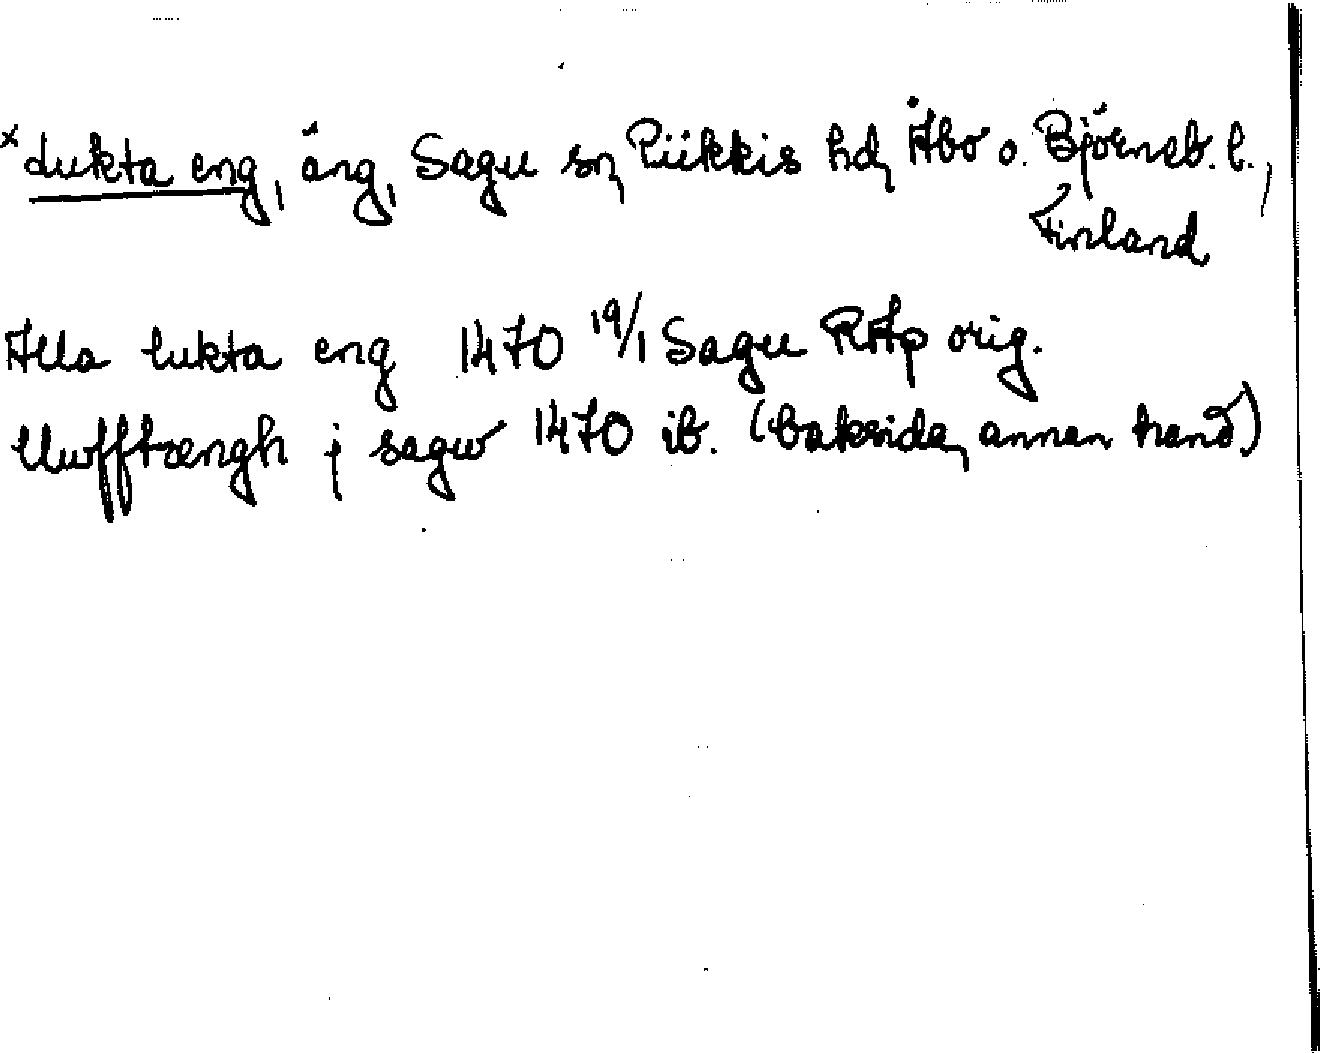 x Lukta eng, äng, Sagu sn, Piikkis hd, Åbo o. Björneb. l.,
Finland
Alla lukta eng 1470 19/1 Sagu RAp orig.
Uwfftængh j sagw 1470 ib. (baksida, annan hand.)